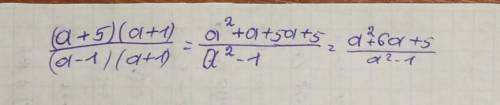 (a+5)(a+1)/(a-1)(a+1) = a²+a+5a+5/a²-1 = a²+6a+5/a²-1